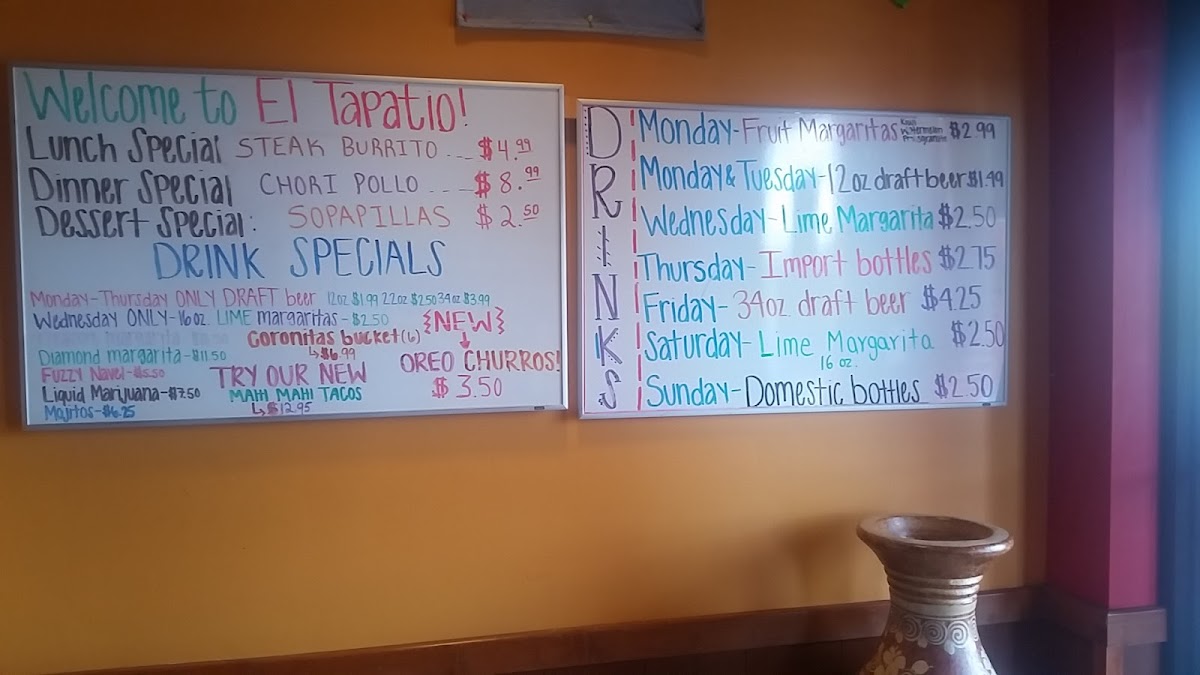 Welcome to El Tapatio!
Lunch Special STEAK BURRITO... $4.99
Dinner Special CHORI POLLO.... $8.99
Dessert Special: SOPAPILLAS $2.50
DRINK SPECIALS
Monday-Thursday ONLY DRAFT beer 12oz $1.99 22oz $2.50 34oz $3.99
Wednesday ONLY-16oz. LIME margaritas-$2.50
Diamond margarita-$11.50
Fuzzy Navel-$5.50
Liquid Marijuana-$7.50
Mojitos-$6.25
Coronitas bucket(6)
$6.99
TRY OUR NEW
MAHI MAHI TACOS
$12.95
{NEW}
OREO CHURROS!
$3.50
DRINKS
Monday-Fruit Margaritas $2.99
Monday & Tuesday-12oz draft beer $1.99
Wednesday-Lime Margarita $2.50
Thursday-Import bottles $2.75
Friday-34oz draft beer $4.25
Saturday-Lime Margarita $2.50
16 oz.
Sunday-Domestic bottles $2.50